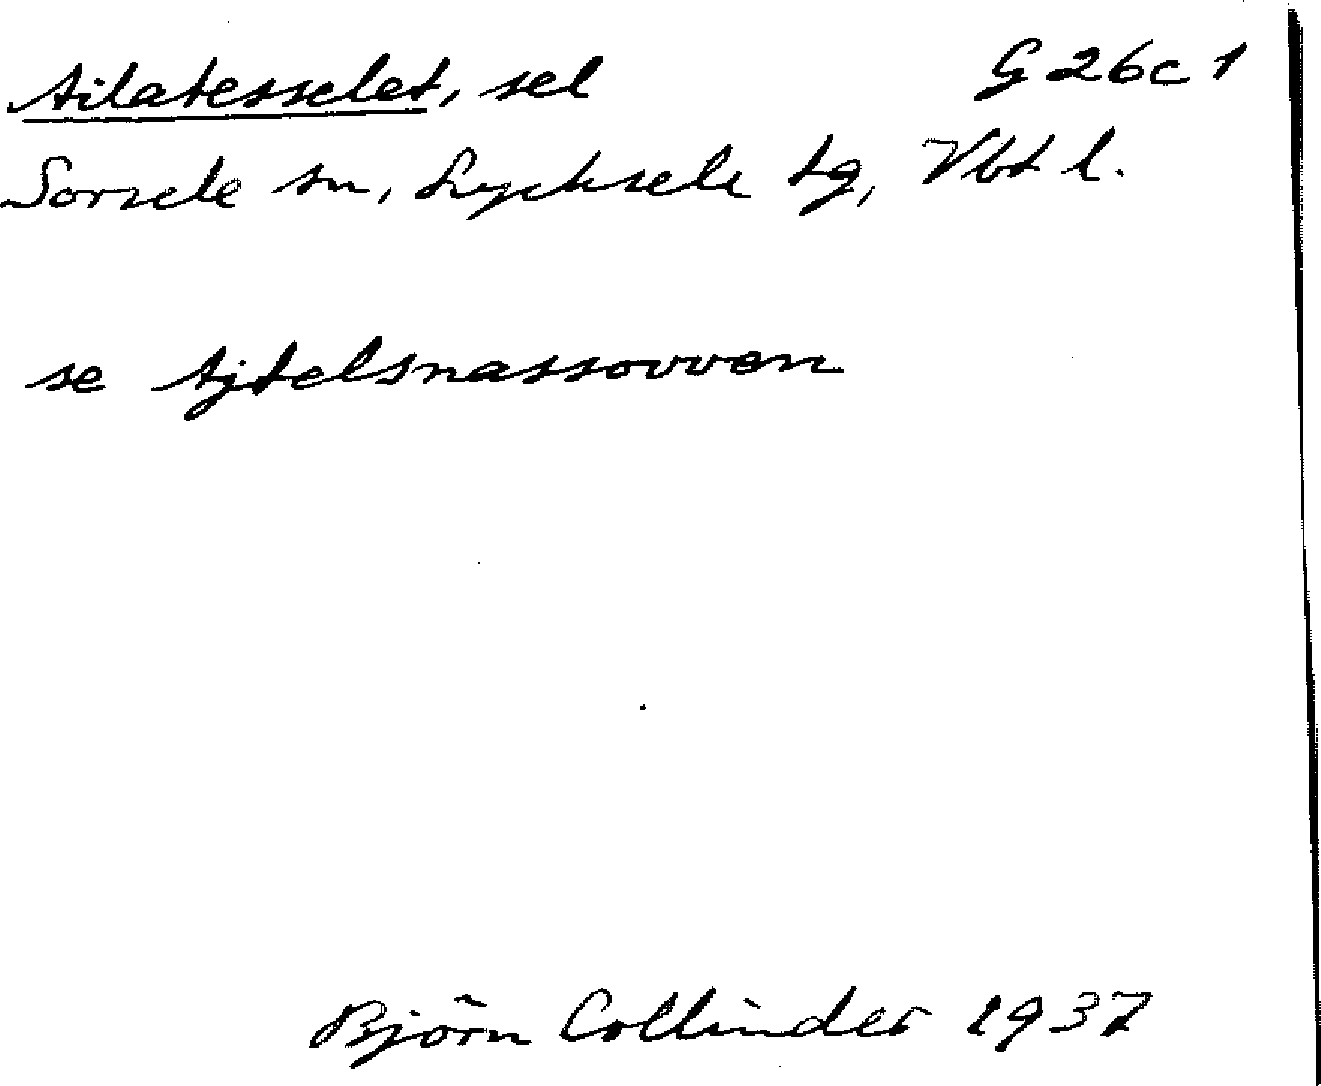 Ailatesselet, sel G 26c 1
Sorsele sn, Lycksele tg, Vbt l.
se Ajtelsnassovven
Björn Collinder 1937